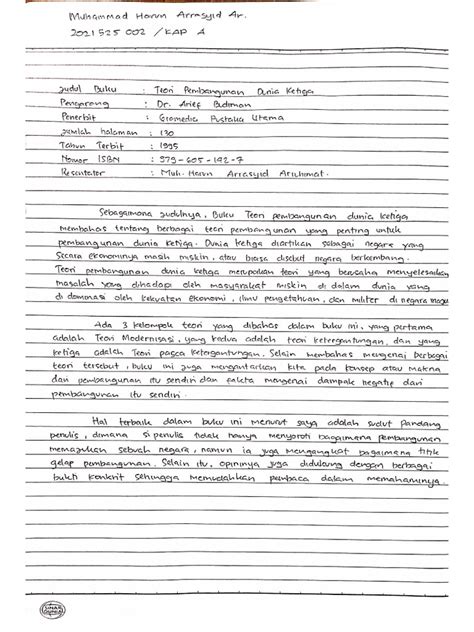 Muhammad Harun Arrasyid Ar.
2021 525 002 / KAP A
Judul Buku : Teori Pembangunan Dunia Ketiga
Pengarang : Dr. Arief Budiman
Penerbit : Gramedia Pustaka Utama
Jumlah halaman : 130
Tahun Terbit : 1995
Nomor ISBN : 979-605-192-7
Resentator : Muh. Harun Arrasyid Arrohmat.
Sebagaimana judulnya, Buku Teori pembangunan dunia ketiga
membahas tentang berbagai teori pembangunan yang penting untuk
pembangunan dunia ketiga. Dunia ketiga diartikan sebagai negara yang
secara ekonominya masih miskin, atau biasa disebut negara berkembang.
Teori pembangunan dunia ketiga merupakan teori yang berusaha menyelesaikan
masalah yang dihadapi oleh masyarakat miskin di dalam dunia yang
di dominasi oleh kekuatan ekonomi, ilmu pengetahuan, dan militer di negara maju
Ada 3 kelompok teori yang dibahas dalam buku ini, yang pertama
adalah Teori Modernisasi, yang kedua adalah teori ketergantungan, dan yang
ketiga adalah Teori pasca ketergantungan. Selain membahas mengenai berbagai
teori tersebut, buku ini juga mengantarkan kita pada konsep atau makna
dari pembangunan itu sendiri dan fakta mengenai dampak negatif dari
pembangunan itu sendiri.
Hal terbaik dalam buku ini menurut saya adalah sudut Pandang
penulis, dimana si penulis tidak hanya menyoroti bagaimana pembangunan
memajukan sebuah negara, namun ia juga mengangkat bagaimana titik
gelap pembangunan. Selain itu, opininya juga didukung dengan berbagai
bukti konkrit sehingga memudahkan pembaca dalam memahaminya.
SINAR
DUNIA